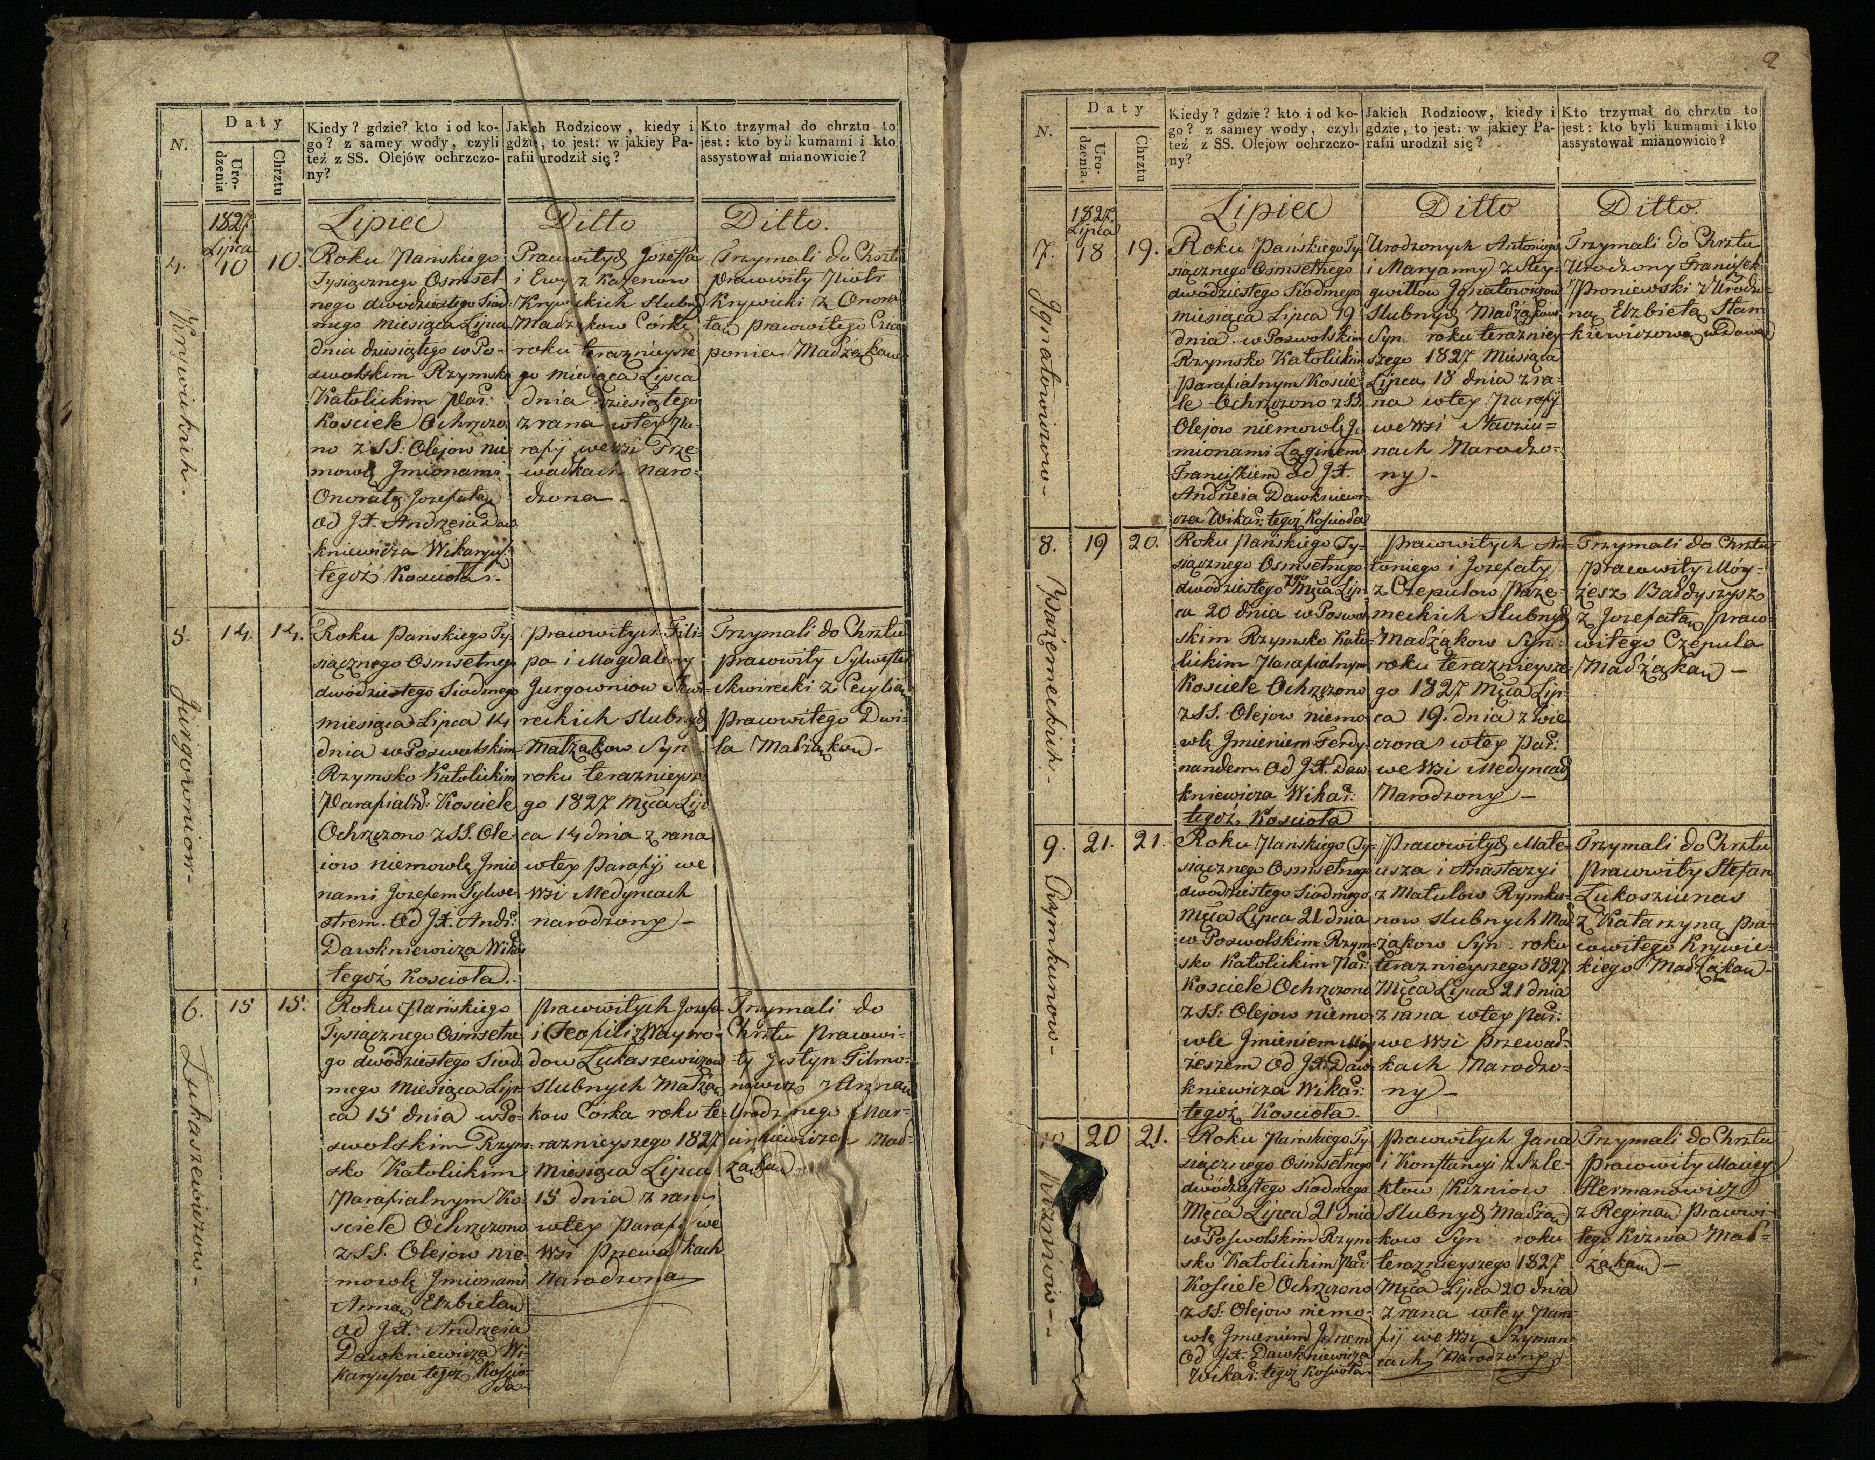 N.
Daty
Urodzenia
Chrztu
Kiedy? gdzie? kto i od ko-
go? z samey wody, czyli
też z SS. Olejów ochrzczo-
ny?
Jakich Rodzicow, kiedy i
gdzie, to jest: w jakiey Pa-
rafii urodził się?
Kto trzymał do chrztu to
jest: kto byli kumami i kto
assystował mianowicie?
1827
Lipca
Lipiec
Ditto
Ditto.
4.
10
10.
Krywickich.
Roku Pańskiego
Tysiącznego Osmset
nego dwódziestego Siod
mego miesiąca Lipca
dnia dziesiątego w Po-
swolskim Rzymsko
Katolickim Par:
Kosciele Ochrzczo
no z SS: Olejow nie
mowlę Jmionami
Onoratą Jozefatą
od J.X. Andrzeia Daw
kniewicza Wikaryu.
tegóż Kosciola.
Pracowitych Jozefa
i Ewy z
Krywickich slubnych
Madżąkow Córkę
roku teraznieysze
go miesiąca Lipca
dnia Dziesiątego
z rana w tey Pa-
rafij we wsi Prze
wadkach naro-
dzona -
Trzymali do Chrztu
Pracowity Piotr
Krywicki z Onora
tą pracowitego Cze
ponia Madżąkow
5.
14.
14.
Jurgowniow-
Roku Pańskiego Ty-
siącznego Osmsetnego
dwódziestego Siodmego
miesiąca Lipca 14
dnia w Poswolskim
Rzymsko Katolickim
Parafialn: Kosciele
Ochrzczono z SS. Ole
iow niemowlę Jmio
nami Jozefem Sylwe
strem. Od J.X. Andr:
Dawkniewicza Wikar
tegóż Kosciola.
pracowitych Fili
pa i Magdaleny
Jurgowniow Skwi-
reckich slubnych
Małżąkow Syn
roku teraznieysze
go 1827 Mca Lip
ca 14 dnia z rana
w tey Parafij we
wsi Medyncach
narodzony -
Trzymali do Chrztu
pracowity Sylwester
Skwirecki z Cecylią
pracowitego Dwi-
la Małżąkow-
6.
15
15.
Lukaszewiczow-
Roku Pańskiego
Tysiącznego Osmsetne
go dwódziestego Siod
mego Miesiąca Lip
ca 15 dnia w Po-
swolskim Rzym-
sko Katolickim
Parafialnym Ko-
sciele Ochrzczono
z SS. Olejow nie-
mowlę Jmionami
Anną Elzbietą
od J.X. Andrzeia
Dawkniewicza Wi-
karyusza tegoz Koscio
la
pracowitych Jozefa
i Teofili z Waywo-
dow Lukaszewiczow
slubnych Małżą
kow Corka roku te-
raznieyszego 1827
Miesiąca Lipca
15 dnia z rana
w tey Parafij we
wsi Przewadkach
Narodzona
Trzymali do
Chrztu Pracowi-
ty Justyn Filmo-
nowicz z Anną
Urodznego Mar-
cinkiewicza Mad-
żąkow
2
N.
Daty
Urodzenia,
Chrztu
Kiedy? gdzie? kto i od ko-
go? z samey wody, czyli
też z SS. Olejow ochrzczo-
ny?
Jakich Rodzicow, kiedy i
gdzie, to jest: w jakiey Pa-
rafii urodził się?
Kto trzymał do chrztu to
jest: kto byli kumami i kto
assystował mianowicie?
1827.
Lipca
Lipiec
Ditto
Ditto.
7.
18
19.
Jgnatowiczow-
Roku Pańskiego Ty-
siącznego Osmsetnego
dwódziestego Siodmego
miesiąca Lipca 19
dnia w Poswolskim
Rzymsko Katolickim
Parafialnym Koscie-
le Ochrzczono z SS.
Olejow niemowlę J
mionami Laginem
Franciszkiem od J.X.
Andrzeia Dawkniewi-
cza Wikar: tegoż Kosciola
Urodzonych Antoniego
i Maryanny z Rey-
gwillow Jgnatowiczow
Slubnych Madżąkow
Syn roku terazniey
szego 1827 Miesiąca
Lipca 18 dnia z ra-
na w tey Parafij
we wsi Stawciu=
nach Narodzo-
ny -
Trzymali do Chrztu
Urodzony Franciszek
Proniewski z Urodzo-
ną Elzbietą Stan-
kiewiczową wdową
8.
19
20.
Roku Pańskiego Ty-
siącznego Osmsetnego
dwódziestego 7go Mca Lip-
ca 20 dnia w Poswol
skim Rzymsko Kato-
lickim Parafialnym
Kosciele Ochrzczono
z SS. Olejow niemo
wlę Jmieniem Ferdy-
nandem. Od J.X. Daw
kniewicza Wikar:
tegóż Kosciola
Pracowitych An-
toniego i Jozefaty
z Czepulow
meckich Slubnych
Madżąkow Syn
roku teraznieysze
go 1827 Mca Lip-
ca 19. dnia z wie
czora w tey Par:
we Wsi Medyncach
Narodzony -
Trzymali do Chrztu
Pracowity Moy-
żesz Baldyszysz
z Jozefatą praco-
witego Czepula
Madżąkow -
9.
21.
21.
Rymkunow-
Roku Pańskiego Ty-
siącznego Osmsetnego
dwódziestego Siodmego
Mca Lipca 21 dnia
w Poswolskim Rzym-
sko Katolickim Par:
Kosciele Ochrzczono
z SS: Olejow niemo-
wle Jmieniem Moy
żeszem Od J.X: Daw
kniewicza Wikar:
tegóż Kosciola
Pracowitych Mate-
usza i Anastazyi
z Matulow Rymku-
now slubnych Mad
żąkow Syn roku
teraznieyszego 1827
Mca Lipca 21 dnia
z rana w tey Par:
we Wsi Przewad-
kach Narodzo-
ny -
Trzymali do Chrztu
Pracowity Stefan
Lukosziunas
z Katarzyną Pra-
cowitego Krywic-
kiego Madżąkow-
20
21.
Kizniow-
Roku Pańskiego Ty
siącznego Osmsetnego
dwódziestego Siodmego
Mca Lipca 21 dnia
w Poswolskim Rzym
sko Katolickim Par
Kosciele Ochrzczono
z SS. Olejow niemo-
wlę Jmieniem Janem
Od J.X. Dawkniewicza
Wikar: tegoż Kosciola
Pracowitych Jana
i Konstancyi z Szle-
ktow Kizniow
Slubnych Madżą
kow Syn roku
teraznieyszego 1827
Mca Lipca 20 dnia
z rana w tey Para
fij we Wsi Szyman-
cach Narodzony
Trzymali do Chrztu
Pracowity Maciey
Hermanowicz
z Reginą Pracowi-
tego Kiznia Mał-
żąkow -